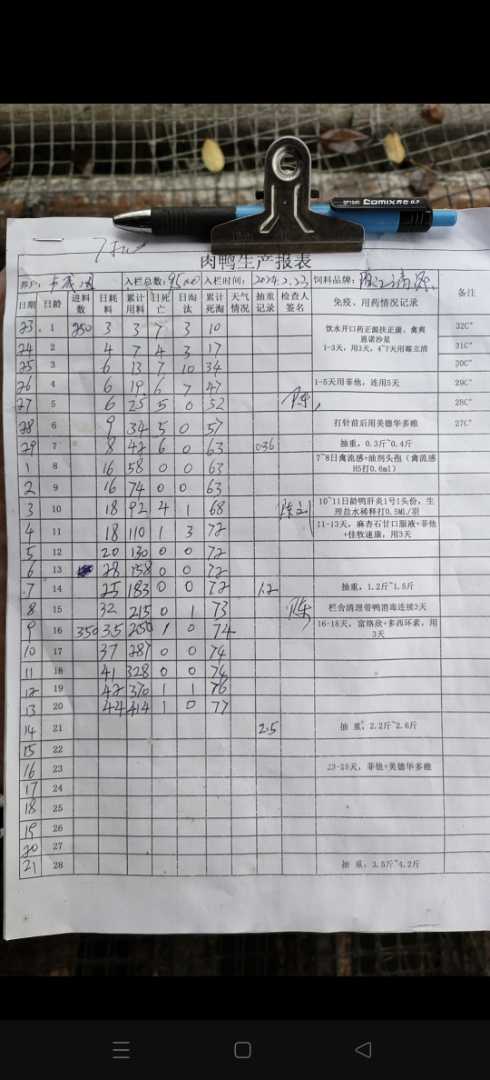 comix
肉鸭生产报表
养户： 入栏总数：9500 入栏时间：2024.2.23 饲料品牌：
日期 日龄 进料数 日耗料 累计用料 日死亡 日淘汰 累计死淘 天气情况 抽重记录 检查人签名 免疫、用药情况记录 备注
23 1 250 3 3 7 3 10 饮水开口药正源扶正康、禽爽 32C°
24 2 4 7 4 3 17 1-3天，用3天，4~7天用霉立清 31C°
25 3 6 13 7 10 34 30C°
26 4 6 19 6 7 47 1-5天用菲他，连用5天 29C°
27 5 6 25 5 0 52 陈 28C°
28 6 9 34 5 0 57 打针前后用美德华多维 27C°
29 7 8 42 6 0 63 036 抽重，0.3斤~0.4斤
1 8 16 58 0 0 63 7~8日禽流感+油剂头孢（禽流感H5打0.6ml）
2 9 16 74 0 0 63
3 10 18 92 4 1 68 10~11日龄鸭肝炎1号1头份，生理盐水稀释打0.5ML/羽
4 11 18 110 1 3 72 11-13天，麻杏石甘口服液+菲他+佳牧速康，用3天
5 12 20 130 0 0 72
6 13 28 158 0 0 72
7 14 25 183 0 0 72 1.2 抽重，1.2斤~1.5斤
8 15 32 215 0 1 73 陈 栏舍清理带鸭消毒连续3天
9 16 350 35 250 1 0 74 16-18天，富络欣+多西环素，用3天
10 17 37 287 0 0 74
11 18 41 328 0 0 74
12 19 42 370 1 1 76
13 20 44 414 1 0 77
14 21 2.5 抽 重，2.2斤~2.6斤
15 22
16 23 23-25天，菲他+美德华多维
17 24
18 25
19 26
20 27
21 28 抽 重，3.5斤~4.2斤